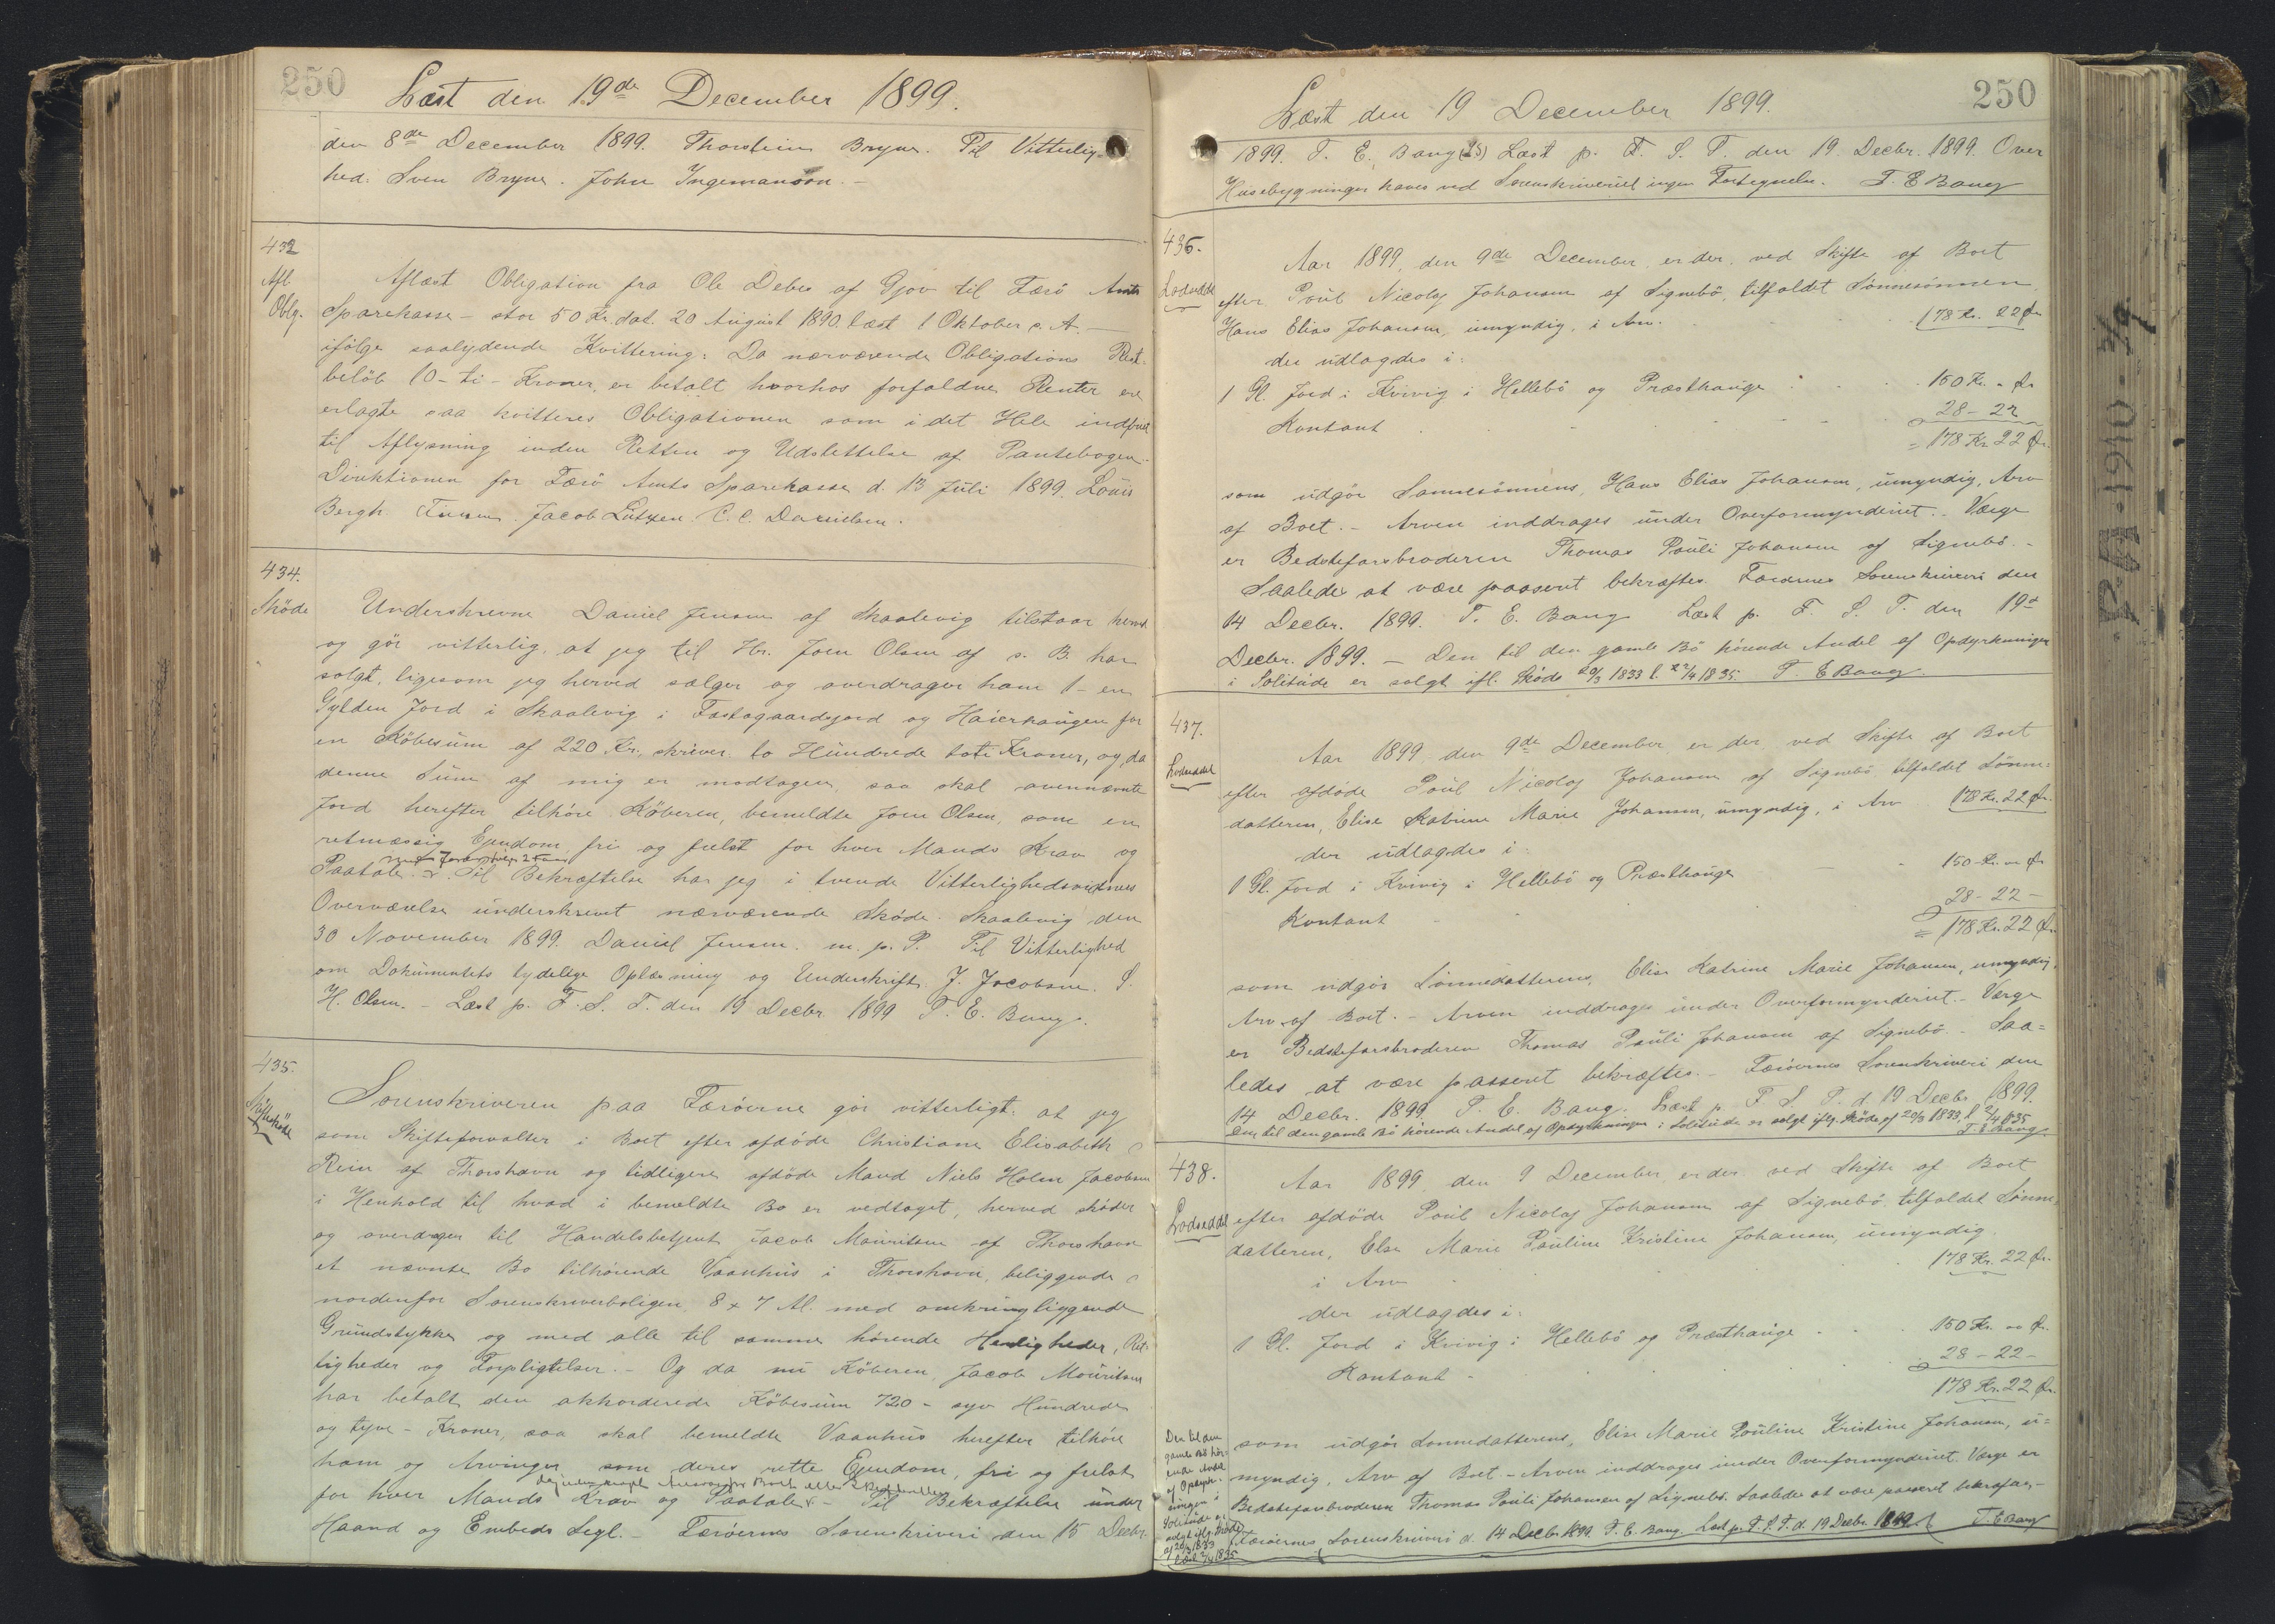 250
Læst den 19de December 1899.
den 8de December 1899. Thorstein Bryne. Til Vitterlig-
hed. Sven Bryne. John Ingemanson.-
432
Afl
Oblg.
Aflæst Obligation fra Ole Debes af Gjov til Færö Amts
Sparekasse - stor 50 Kr. dat. 20 August 1890. læst 1 Oktober s. A. -
ifölge saalydende Kvittering: Da nærværende Obligations Rest-
belöb 10 - ti - Kroner, er betalt hvorhos forfaldne Renter ere
erlagte saa kvitteres Obligationen som i det Hele indfriet
til Aflysning inden Retten og Udslettelse af Pantebogen.
Direktionen for Færö Amts Sparekasse d. 13 Juli 1899. Louis
Bergh. Jacob Lützen. C. C. Danielsen.
434.
Sköde
Underskrevne Daniel Jensen af Skaalevig tilstaar herved
og gör vitterlig, at jeg til Hr. Joen Olsen af s. B. har
solgt, ligesom jeg herved sælger og overdrager ham 1 - en
Gylden Jord i Skaalevig i Fastagaardsjord og Haierhaugen for
en Köbesum af 220 Kr. skriver to Hundrede tote Kroner, og, da
denne Sum af mig er modtagen, saa skal ovennævnte
Jord herefter tilhöre Köberen, bemeldte Joen Olsen, som en
retmæssig Ejendom, fri og frelst for hver Mands Krav og
Paatale. Til Bekræftelse har jeg i tvende Vitterlighedsvidners
Overværelse underskrevet nærværende Sköde. Skaalevig den
30 November 1899. Daniel Jensen. m. p. P. Til Vitterlighed
om Dokumentets tydelige Oplæsning og Underskrift J. Jacobsen. S.
H. Olsen. - Læst p. F. S. T. den 19 Decbr. 1899 T. E. Bang.
435.
Skifteskøde
Sorenskriveren paa Færöerne gör vitterligt: at jeg
som Skifteforvalter i Boet efter afdöde Christiane Elisabeth
Rein af Thorshavn og tidligere afdöde Mand Niels Holm Jacobsen
i Henhold til hvad i bemeldte Bo er vedtaget, herved sköder
og overdrager til Handelsbetjent Jacob Mouritsen af Thorshavn
et nævnte Bo tilhörende Vaanhus i Thorshavn, beliggende
nordenfor Sorenskriverboligen, 8 x 7 Al. med omkringliggende
Grundstykke og med alle til samme hörende Herligheder, Ret-
tigheder og Forpligtelser. - Og da nu Köberen, Jacob Mouritsen
har betalt den akkorderede Köbesum 720 - syv Hundrede
og tyve - Kroner, saa skal bemeldte Vaanhus herefter tilhöre
ham og Arvinger som deres rette Ejendom, fri og frelst
for hver Mands Krav og Paatale. - Til Bekræftelse under
Haand og Embeds Segl. - Færöernes Sorenskriveri den 15 Decbr.
250
Læst den 19 December 1899.
1899. T. E. Bang (LS) Læst p. F. S. T. den 19. Decbr. 1899. Over
Husebygninger haves ved Sorenskriveriet ingen Fortegnelse. T. E Bang
436.
Lodseddel
Aar 1899, den 9de December, er der, ved Skifte af Boet
efter Poul Nicolaj Johansen af Signebö, tilfaldet Sönnesönnen,
Hans Elias Johansen, umyndig, i Arv. 178 Kr. 22 Ör
der udlagdes i:
1 Gl. Jord i Kvivig i Hellebö og Præsthauge 150 Kr. " Ör
Kontant 28 - 22
= 178 Kr 22 Ör.
som udgör Sønnesönnens, Hans Elias Johansen, umyndig, Arv
af Boet. - Arven inddrages under Overformynderiet. - Værge
er Bedstefarsbroderen Thomas Pauli Johansen af Signebö. -
Saaledes at være passeret bekræftes. Færöernes Sorenskriveri den
14 Decbr. 1899. T. E. Bang Læst p. F. S. T. den 19de
Decbr. 1899. - Den til den gamle Bö hörende Andel af Opdyrkningen
i Solitude er solgt ifl. Sköde 20/3 1833 l. 22/4 1835 T. E Bang.
437.
Lodseddel
Aar 1899 den 9de December er der ved Skifte af Boet
efter afdöde Poul Nicolaj Johansen af Signebö tilfaldet Sönne-
datteren, Elise Katrine Marie Johansen, umyndig, i Arv 178 Kr. 22 Ör.
der udlagdes i:
1 Gl. Jord i Kvivig i Hellebö og Præsthauge 150 Kr. " Ör
Kontant 28 - 22 -
= 178 Kr. 22 Ör.
som udgör Sönnedatterens, Elise Katrine Marie Johansen, umyndig,
Arv af Boet. - Arven inddrages under Overformynderiet. - Værge
er Bedstefarsbroderen Thomas Pauli Johansen af Signebö. - Saa=
ledes at være passeret bekræftes. - Færöernes Sorenskriveri den
14 Decbr. 1899. T. E. Bang. Læst p. F. S. T. d. 19 Decbr. 1899.
Den til den gamle Bö hörende Andel af Opdyrkningen i Solitude er solgt iflg. Sköde af 20/3 1833, l 2/4 1835
T. E Bang
438.
Lodseddel
Aar 1899 den 9 December, er der ved Skifte af Boet
efter afdöde Poul Nicolaj Johansen af Signebö tilfaldet Sönne-
datteren, Else Marie Pauline Kristine Johansen, umyndig
i Arv 178 Kr. 22 Ör.
der udlagdes i:
1 Gl. Jord i Kvivig i Hellebö og Præsthauge 150 Kr. " Ör.
Kontant - 28 - 22 -
178 Kr. 22 Ör.
som udgör Sønnedatterens, Elise Marie Pauline Kristine Johansen, u=
myndig, Arv af Boet. - Arven inddrages under Overformynderiet. Værge er
Bedstefarsbroderen Thomas Pauli Johansen af Signebö. Saaledes at være passeret bekræftes. -
Færöernes Sorenskriveri d. 14 Decbr. 1899. T. E. Bang. Læst p. F. S. T. d. 19 Decbr. 1899 T. E Bang
Den til den
gamle Bö hör-
ende Andel
af Opdyrk-
ningen i
Solitude er
solgt iflg. Sköde
af 20/3 1833
læst 2/4 1835